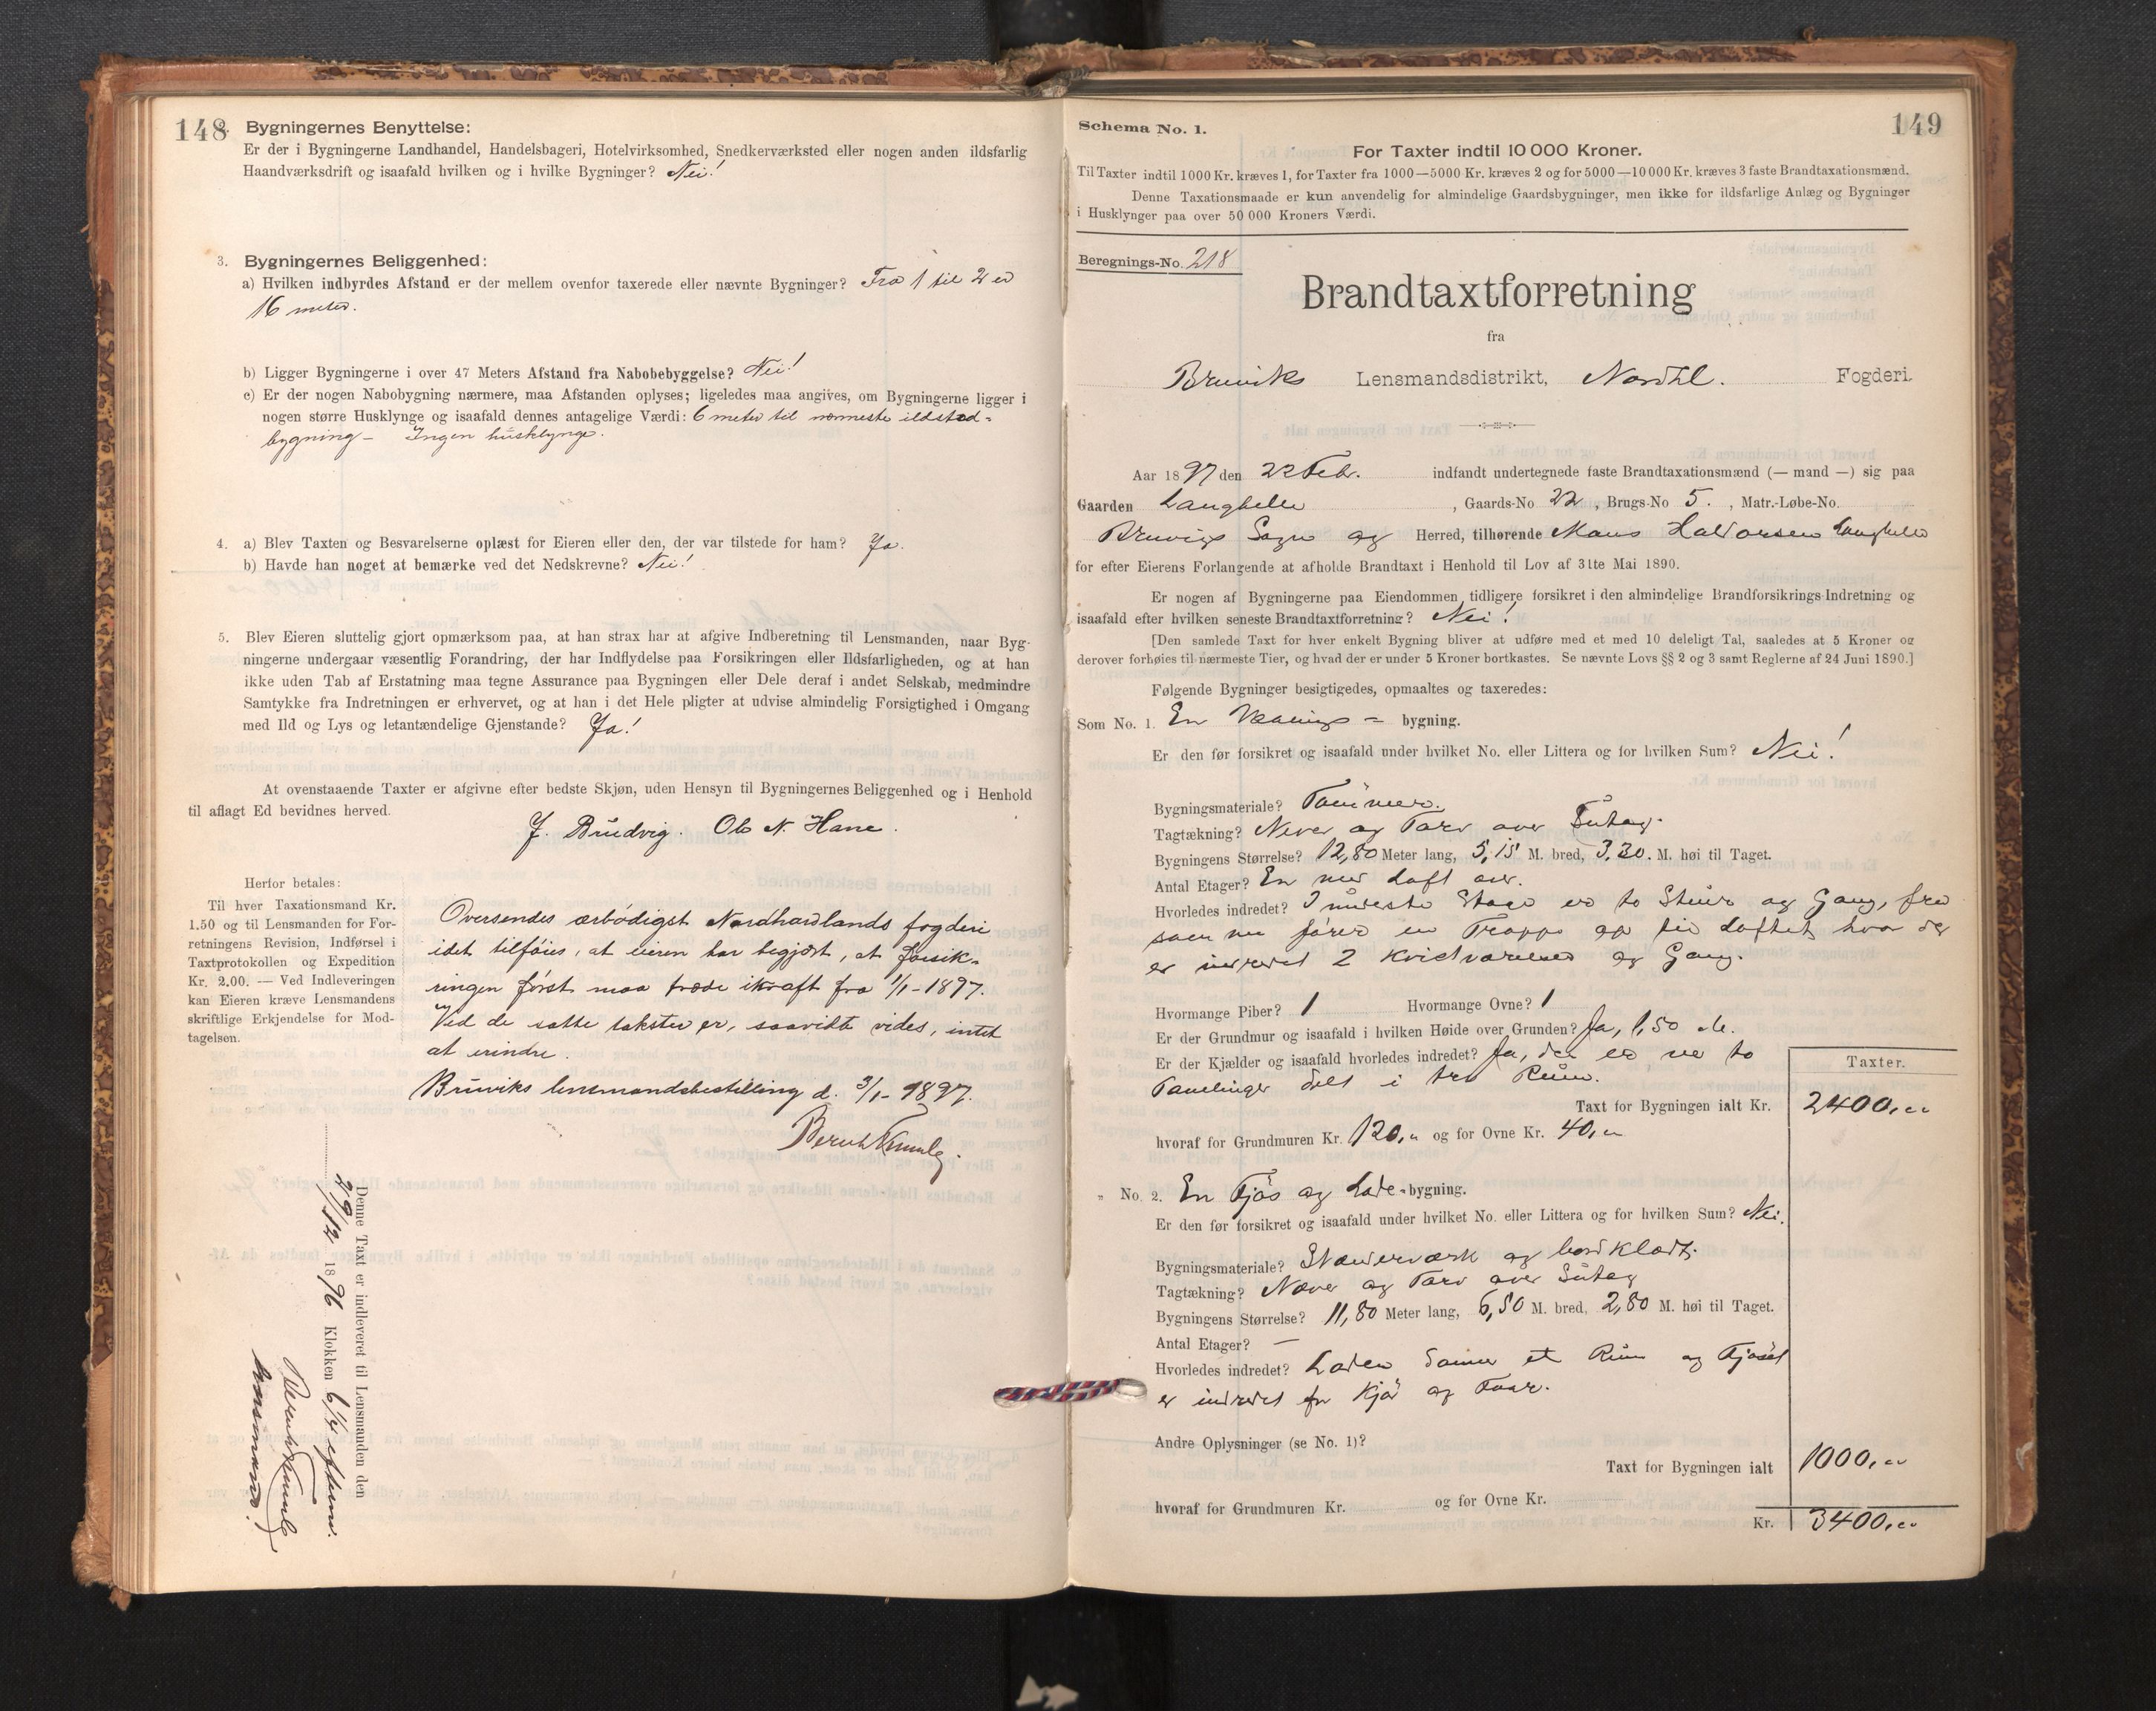 148
2. Bygningernes Benyttelse:
Er der i Bygningerne Landhandel, Handelsbageri, Hotelvirksomhed, Snedkerværksted eller nogen anden ildsfarlig
Haandværksdrift og isaafald hvilken og i hvilke Bygninger? Nei!
3. Bygningernes Beliggenhed:
a) Hvilken indbyrdes Afstand er der mellem ovenfor taxerede eller nævnte Bygninger? Fra 1 til 2 er
16 meter.
b) Ligger Bygningerne i over 47 Meters Afstand fra Nabobebyggelse? Nei!
c) Er der nogen Nabobygning nærmere, maa Afstanden oplyses; ligeledes maa angives, om Bygningerne ligger i
nogen større Husklynge og isaafald dennes antagelige Værdi: 6 meter til nærmeste ildsted-
bygning - Ingen husklynge.
4. a) Blev Taxten og Besvarelserne oplæst for Eieren eller den, der var tilstede for ham? Ja.
b) Havde han noget at bemærke ved det Nedskrevne? Nei!
5. Blev Eieren sluttelig gjort opmærksom paa, at han strax har at afgive Indberetning til Lensmanden, naar Byg-
ningerne undergaar væsentlig Forandring, der har Indflydelse paa Forsikringen eller Ildsfarligheden, og at han
ikke uden Tab af Erstatning maa tegne Assurance paa Bygningen eller Dele deraf i andet Selskab, medmindre
Samtykke fra Indretningen er erhvervet, og at han i det Hele pligter at udvise almindelig Forsigtighed i Omgang
med Ild og Lys og letantændelige Gjenstande? Ja!
At ovenstaaende Taxter er afgivne efter bedste Skjøn, uden Hensyn til Bygningernes Beliggenhed og i Henhold
til aflagt Ed bevidnes herved.
J. Brudvig. Ole N. Hane.
Herfor betales:
Til hver Taxationsmand Kr.
1.50 og til Lensmanden for For-
retningens Revision, Indførsel i
Taxtprotokollen og Expedition
Kr. 2.00. — Ved Indleveringen
kan Eieren kræve Lensmandens
skriftlige Erkjendelse for Mod-
tagelsen.
Oversendes ærbödigst Nordhordlands fogderi
idet tilföies, at eieren har begjært, at forsik-
ringen först maa træde ikraft fra 1/1-1897.
Ved de satte takster er, saavidt vides, intet
at erindre.
Bruviks lensmandsbestilling d. 3/1-1897.
Denne Taxt er indleveret til Lensmanden den
29/12 1896 Klokken 6 1/4 efterm.
lensmand.
149
Schema No. 1.
For Taxter indtil 10 000 Kroner.
Til Taxter indtil 1000 Kr. kræves 1, for Taxter fra 1000—5000 Kr. kræves 2 og for 5000—10000 Kr. kræves 3 faste Brandtaxationsmænd.
Denne Taxationsmaade er kun anvendelig for almindelige Gaardsbygninger, men ikke for ildsfarlige Anlæg og Bygninger
i Husklynger paa over 50 000 Kroners Værdi.
Beregnings-No. 218
Brandtaxtforretning
fra
Bruviks Lensmandsdistrikt, Nordhl. Fogderi.
Aar 1897 den 22 Feb. indfandt undertegnede faste Brandtaxationsmænd (— mand —) sig paa
Gaarden Langhelle, Gaards-No 22, Brugs-No 5., Matr.-Løbe-No.
Bruvigs Sogn og Herred, tilhørende Mons Haldorsen Langhelle
for efter Eierens Forlangende at afholde Brandtaxt i Henhold til Lov af 31te Mai 1890.
Er nogen af Bygningerne paa Eiendommen tidligere forsikret i den almindelige Brandforsikrings-Indretning og
isaafald efter hvilken seneste Brandtaxtforretning? Nei!
[Den samlede Taxt for hver enkelt Bygning bliver at udføre med et med 10 deleligt Tal, saaledes at 5 Kroner og
derover forhøies til nærmeste Tier, og hvad der er under 5 Kroner bortkastes. Se nævnte Lovs §§ 2 og 3 samt Reglerne af 24 Juni 1890.]
Følgende Bygninger besigtigedes, opmaaltes og taxeredes:
Som No. 1. En Vaanings-bygning.
Er den før forsikret og isaafald under hvilket No. eller Littera og for hvilken Sum? Nei!
Bygningsmateriale? Tømmer.
Tagtækning? Never og Torv over Sutag.
Bygningens Størrelse? 12,80 Meter lang, 5,15 M. bred, 3,30. M. høi til Taget.
Antal Etager? En med Loft over.
Hvorledes indredet? I nederste Etage er to Stuer og Gang, fra
som nu fører en Trappe op til Loftet hvor der
er indredet 2 Kvistværelser og Gang.
Hvormange Piber? 1 Hvormange Ovne? 1
Er der Grundmur og isaafald i hvilken Høide over Grunden? Ja, 1,50 M.
Er der Kjælder og isaafald hvorledes indredet? Ja, der er ved to
Panelinger delt i tre Rum.
Taxter.
Taxt for Bygningen ialt Kr. 2400,00
hvoraf for Grundmuren Kr. 120,00 og for Ovne Kr. 40,00
„ No. 2. En Fjøs og Lade-bygning.
Er den før forsikret og isaafald under hvilket No. eller Littera og for hvilken Sum? Nei.
Bygningsmateriale? Stænderværk og bordklædt.
Tagtækning? Næver og Torv over Sutag
Bygningens Størrelse? 11,80 Meter lang, 6,50 M. bred, 2,80 M. høi til Taget.
Antal Etager? —
Hvorledes indredet? Laden danner et Rum og Fjøset
er indredet for Kjør og Faar.
Andre Oplysninger (se No. 1)?
Taxt for Bygningen ialt 1000,00
hvoraf for Grundmuren Kr. og for Ovne Kr.
Kr. 3400,00